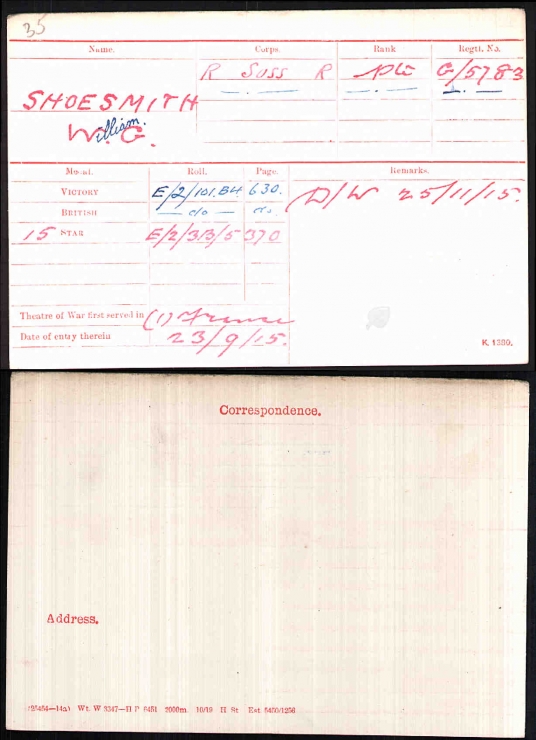 35
Name. Corps. Rank Regtl. No.
R Suss R Pte G/5783
SHOESMITH
W.illiam. G.
Medal. Roll. Page. Remarks.
VICTORY E/2/101.B4 630. D/W 25/11/15.
BRITISH — do — do.
15 STAR E/2/3B/5 370
Theatre of War first served in (1) France
Date of entry therein 23/9/15.
K. 1380.
Correspondence.
Address.
Wt. W 3347—H P 6451 2000m. 10/19 H St